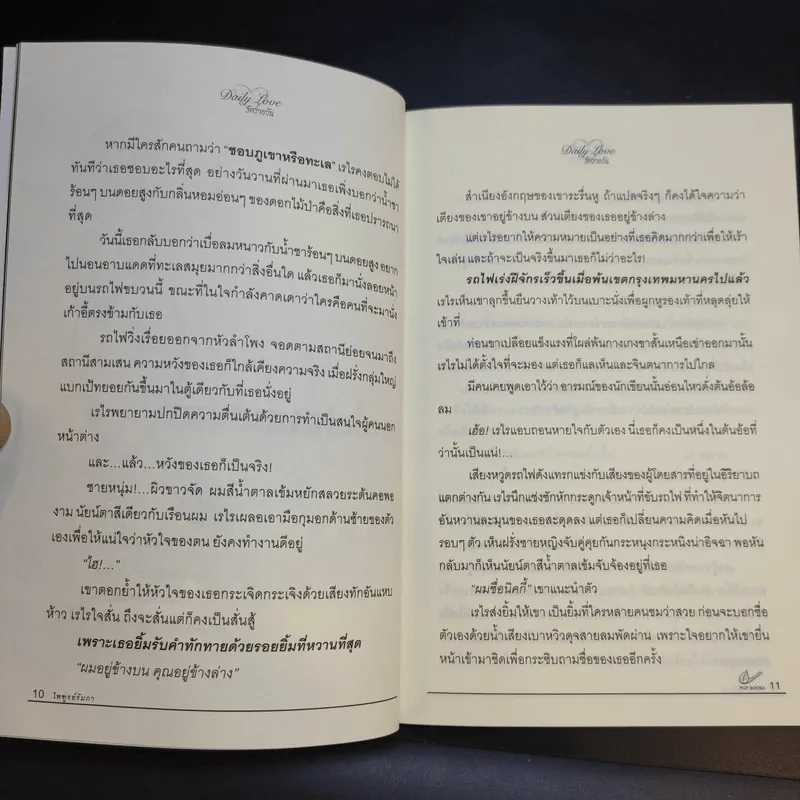 Daily Love
รักรายวัน
หากมีใครสักคนถามว่า "ชอบภูเขาหรือทะเล" เรไรคงตอบไม่ได้
ทันทีว่าเธอชอบอะไรที่สุด อย่างวันวานที่ผ่านมาเธอเพิ่งบอกว่าน้ำชา
ร้อนๆ บนดอยสูงกับกลิ่นหอมอ่อนๆ ของดอกไม้ป่าคือสิ่งที่เธอปรารถนา
ที่สุด
วันนี้เธอกลับบอกว่าเบื่อลมหนาวกับน้ำชาร้อนๆ บนดอยสูง อยาก
ไปนอนอาบแดดที่ทะเลสมุยมากกว่าสิ่งอื่นใด แล้วเธอก็มานั่งลอยหน้า
อยู่บนรถไฟขบวนนี้ ขณะที่ในใจกำลังคาดเดาว่าใครคือคนที่จะมานั่ง
เก้าอี้ตรงข้ามกับเธอ
รถไฟวิ่งเรื่อยออกจากหัวลำโพง จอดตามสถานีย่อยจนมาถึง
สถานีสามเสน ความหวังของเธอก็ใกล้เคียงความจริง เมื่อฝรั่งกลุ่มใหญ่
แบกเป้ทยอยกันขึ้นมาในตู้เดียวกับที่เธอนั่งอยู่
เรไรพยายามปกปิดความตื่นเต้นด้วยการทำเป็นสนใจผู้คนนอก
หน้าต่าง
และ...แล้ว...หวังของเธอก็เป็นจริง!
ชายหนุ่ม!...ผิวขาวจัด ผมสีน้ำตาลเข้มหยักสลวยระต้นคอพอ
งาม นัยน์ตาสีเดียวกับเรือนผม เรไรเผลอเอามือกุมอกด้านซ้ายของตัว
เองเพื่อให้แน่ใจว่าหัวใจของตน ยังคงทำงานดีอยู่
"ไฮ!..."
เขาตอกย้ำให้หัวใจของเธอกระเจิดกระเจิงด้วยเสียงทักอันแหบ
ห้าว เรไรใจสั่น ถึงจะสั่นแต่ก็คงเป็นสั่นสู้
เพราะเธอยิ้มรับคำทักทายด้วยรอยยิ้มที่หวานที่สุด
"ผมอยู่ข้างบน คุณอยู่ข้างล่าง"
10 ไพฑูรย์รัมภา
Daily Love
รักรายวัน
สำเนียงอังกฤษของเขาระรื่นหู ถ้าแปลจริงๆ ก็คงได้ใจความว่า
เตียงของเขาอยู่ข้างบน ส่วนเตียงของเธออยู่ข้างล่าง
แต่เรไรอยากให้ความหมายเป็นอย่างที่เธอคิดมากกว่าเพื่อให้เร้า
ใจเล่น และถ้าจะเป็นจริงขึ้นมาเธอก็ไม่ว่าอะไร!
รถไฟเร่งฝีจักรเร็วขึ้นเมื่อพ้นเขตกรุงเทพมหานครไปแล้ว
เรไรเห็นเขาลุกขึ้นยืนวางเท้าไว้บนเบาะนั่งเพื่อผูกหูรองเท้าที่หลุดลุ่ยให้
เข้าที่
ท่อนขาเปลือยแข็งแรงที่โผล่พ้นกางเกงขาสั้นเหนือเข่าออกมานั้น
เรไรไม่ได้ตั้งใจที่จะมอง แต่เธอก็แลเห็นและจินตนาการไปไกล
มีคนเคยพูดเอาไว้ว่า อารมณ์ของนักเขียนนั้นอ่อนไหวดั่งต้นอ้อล้อ
ลม
เฮ้อ! เรไรแอบถอนหายใจกับตัวเอง นี่เธอก็คงเป็นหนึ่งในต้นอ้อที่
ว่านั้นเป็นแน่!...
เสียงหวูดรถไฟดังแทรกแข่งกับเสียงของผู้โดยสารที่อยู่ในอิริยาบถ
แตกต่างกัน เรไรนึกแช่งชักหักกระดูกเจ้าหน้าที่ขับรถไฟ ที่ทำให้จิตนาการ
อันหวานละมุนของเธอสะดุดลง แต่เธอก็เปลี่ยนความคิดเมื่อหันไป
รอบๆ ตัว เห็นฝรั่งชายหญิงจับคู่คุยกันกระหนุงกระหนิงน่าอิจฉา พอหัน
กลับมาก็เห็นนัยน์ตาสีน้ำตาลเข้มจับจ้องอยู่ที่เธอ
"ผมชื่อนิคกี้" เขาแนะนำตัว
เรไรส่งยิ้มให้เขา เป็นยิ้มที่ใครหลายคนชมว่าสวย ก่อนจะบอกชื่อ
ตัวเองด้วยน้ำเสียงเบาหวิวดุจสายลมพัดผ่าน เพราะใจอยากให้เขายื่น
หน้าเข้ามาชิดเพื่อกระซิบถามชื่อของเธออีกครั้ง
11